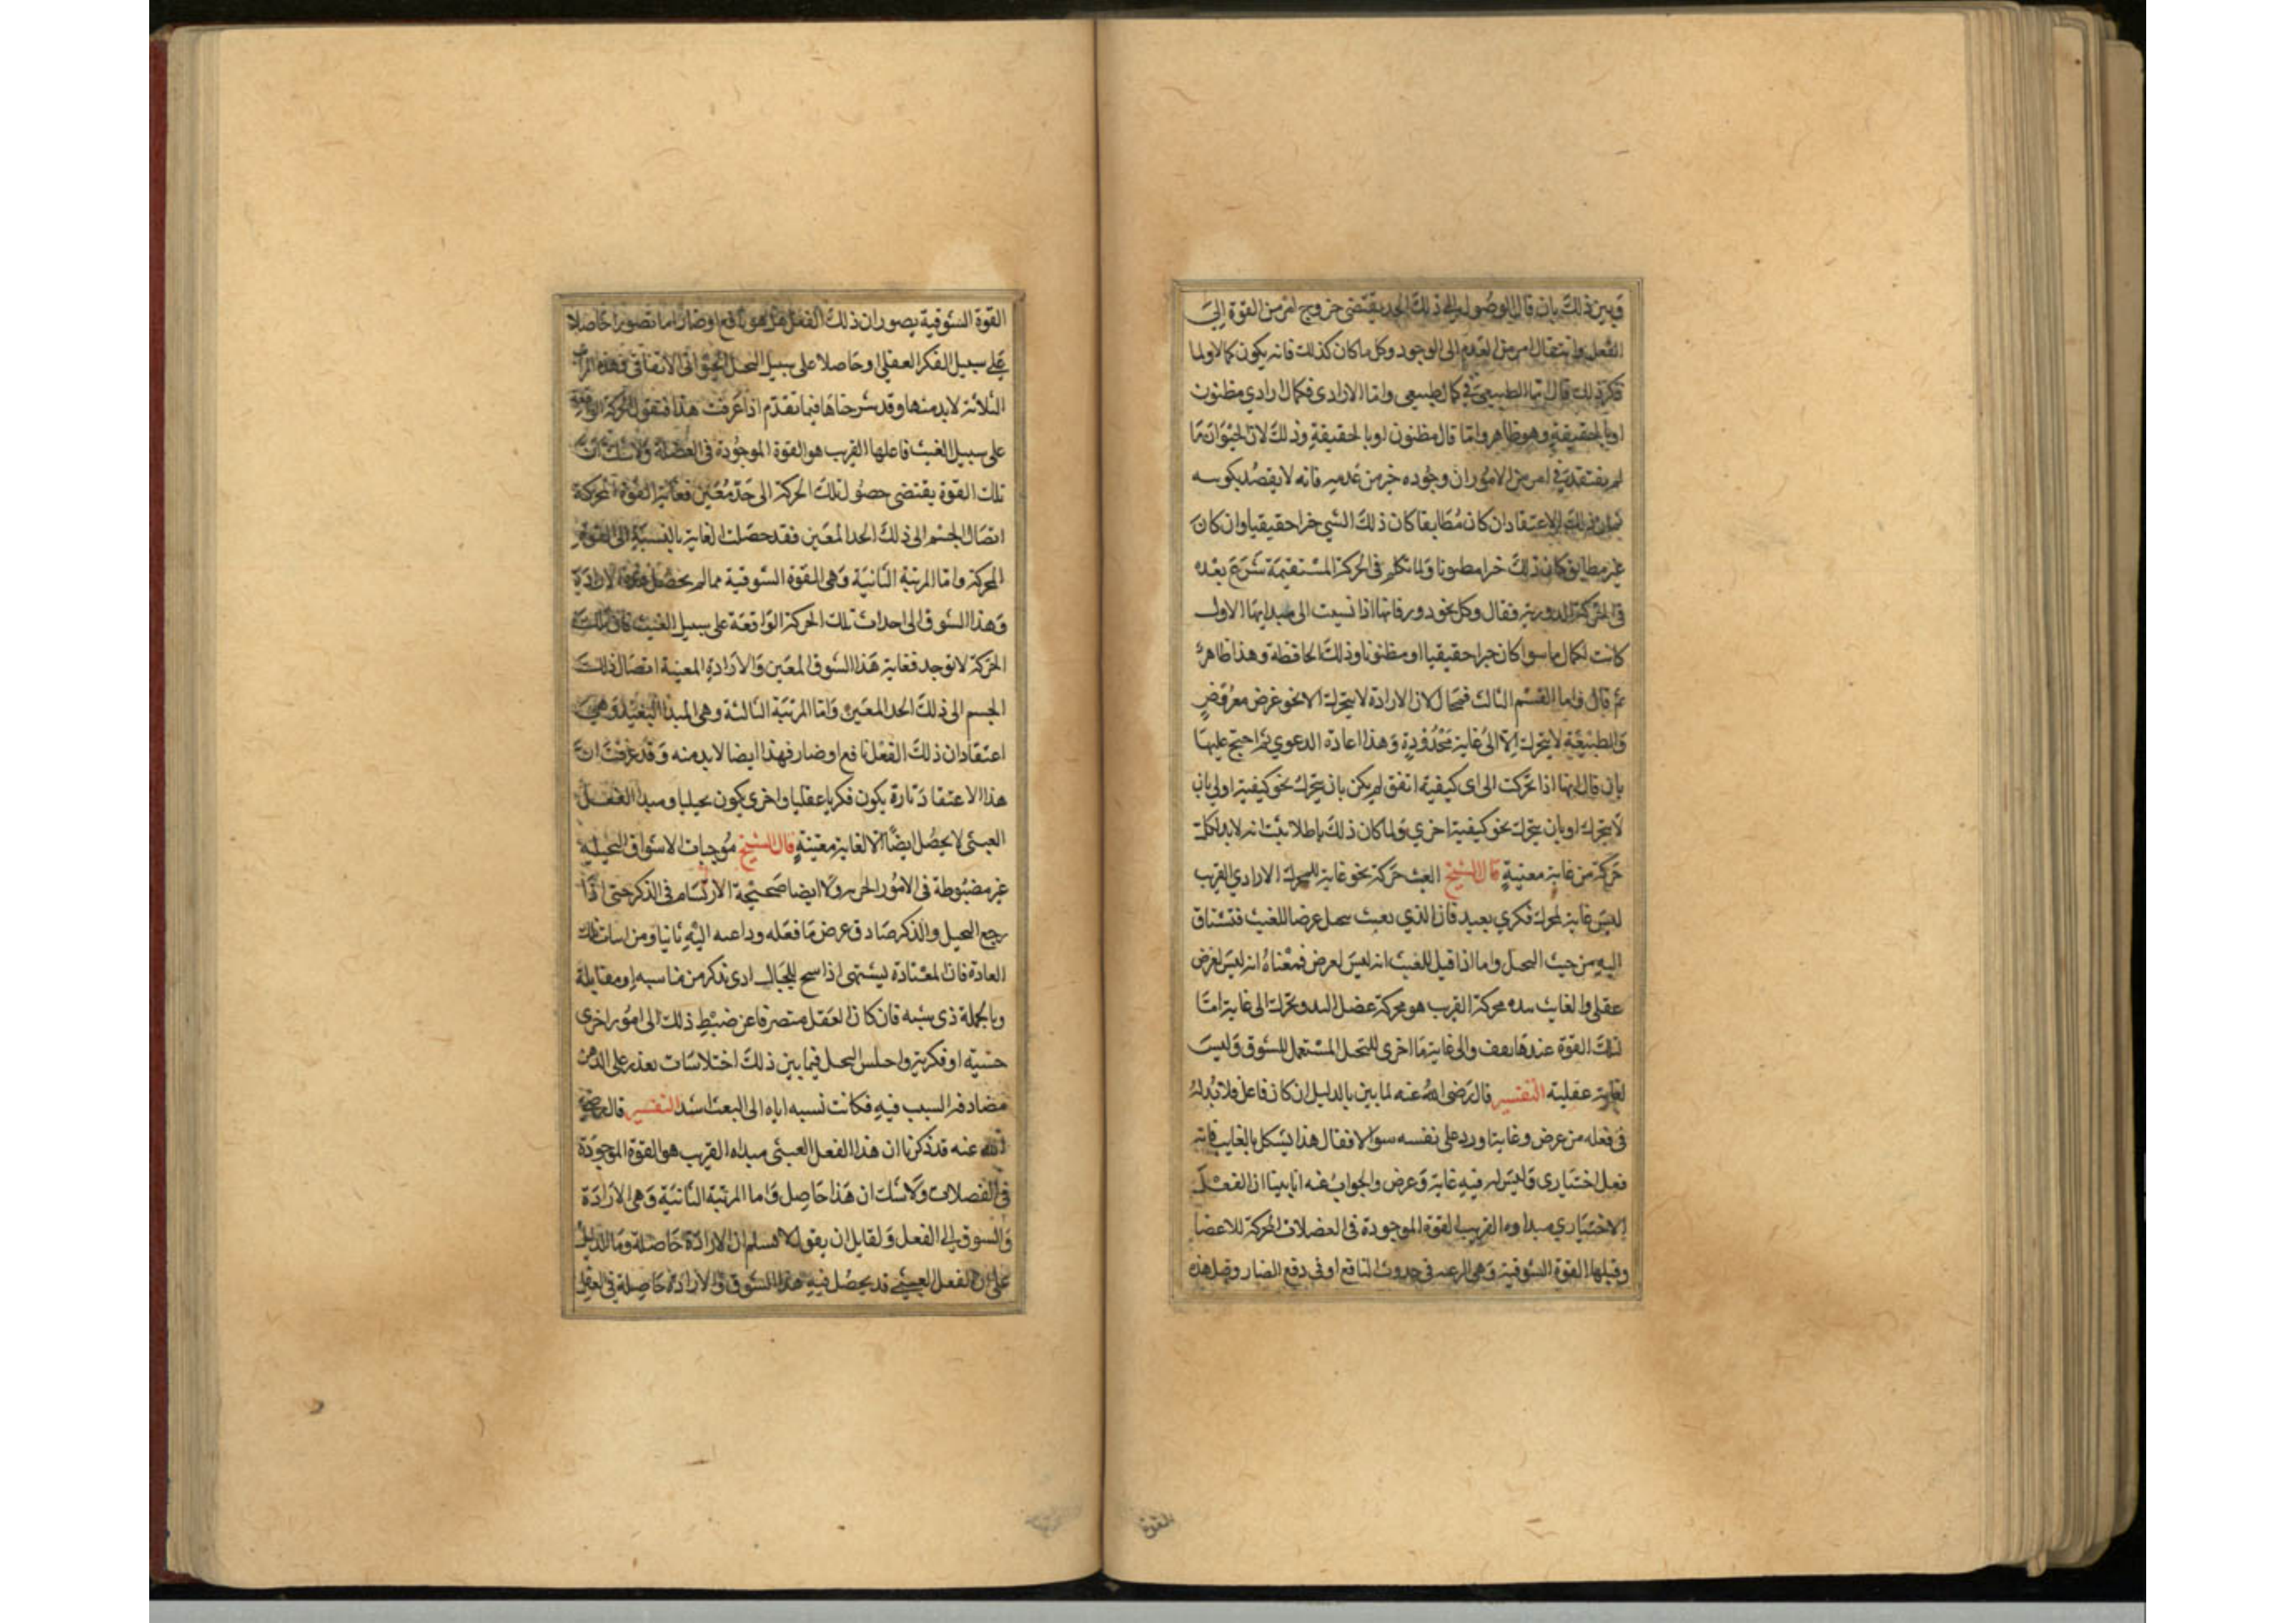 وبين ذلك بان قال الوصول الى ذلك الحد يقتضى خروج امر من القوة الى
الفعل وانتقال امر من العدم الى الوجود وكل ما كان كذلك فانه يكون كمالا ولما
ذكر ذلك قال اما الطبيعى فكمال طبيعى واما الارادى فكمال ارادي مظنون
او بالحقيقة وهو ظاهر وانما قال مظنون او بالحقيقة وذلك لان الحيوان ما
لم يعتقد فى امر من الامور ان وجوده خير من عدمه فانه لا يقصد
ذلك الاعتقاد ان كان مطابقا كان ذلك الشي خيرا حقيقيا وان كان
غير مطابق كان ذلك خيرا مظنونا ولما تكلم فى الحركة المستقيمة شرع بعده
فى الحركة الدورية فقال وكل نحو دور فانها اذا نسبت الى مبدايها الاول
كانت لكمال ما سوا كان خيرا حقيقيا او مظنونا وذلك الحافظة وهذا ظاهر
ثم قال واما القسم الثالث فمحال لان الارادة لا تتحرك الا نحو غرض معروض
والطبيعة لا تتحرك الا الى غاية محدودة وهذا اعادة الدعوي ثم احتج عليها
بان قال انها اذا تحركت الى اى كيفية اتفق لم يكن بان يتحرك نحو كيفية اولى بان
لا يتحرك او بان يتحرك نحو كيفية اخري ولما كان ذلك باطلا ثبت انه لابد لكل
حركة من غاية معينة قال الشيخ العبث حركة نحو غاية للمحرك الارادي القريب
ليس غاية لمحرك فكري بعيد فان الذي يعبث يتخيل غرضا للعبث فتشتاق
اليه من حيث التخيل واما اذا قيل للعبث انه ليس لغرض فمعناه انه ليس لغرض
عقلى والعابث بيده محركه القريب هو محركة عضل اليد وتحرك الى غاية اما
لتلك القوة عندها تقف والى غاية ما اخرى للتخيل المستعمل للشوق وليس
لغاية عقلية التفسير قال رضى الله عنه لما بين بالدليل ان كان فاعل فلا بد له
فى فعله من غرض وغاية اورد على نفسه سوالا فقال هذا يشكل بالعابث فانه
فعل اختيارى وليس له فيه غاية وغرض والجواب عنه انا بينا ان الفعل
الاختياري مبداوه القريب القوة الموجودة فى العضلات المحركة للاعضا
وقبلها القوة الشوقية وهى الرغبة فى حدوث النافع او فى دفع الضار وقبل هذه
القوة
القوة الشوقية تصور ان ذلك الفعل هل هو نافع او ضار اما تصورا حاصلا
على سبيل الفكر العقلى او حاصلا على سبيل التخيل الحيوانى الاتفاقى وهذه المراتب
الثلاثة لا بد منها وقد شرحناها فيما تقدم اذا عرفت هذا فنقول الحركة الواقعة
على سبيل العبث فاعلها القريب هو القوة الموجودة فى العضلة ولا شك ان
تلك القوة يقتضى حصول تلك الحركة الى حد معين فغاية القوة المحركة
اتصال الجسم الى ذلك الحد المعين فقد حصلت الغاية بالنسبة الى القوة
المحركة واما المرتبة الثانية وهى القوة الشوقية فما لم يحصل الارادة
وهذا الشوق الى احداث تلك الحركة الواقعة على سبيل العبث فان تلك
الحركة لا توجد فغاية هذا الشوق المعين والارادة المعينة اتصال ذلك
الجسم الى ذلك الحد المعين واما المرتبة الثالثة وهى المبدا البعيد وهى
اعتقاد ان ذلك الفعل نافع او ضار فهذا ايضا لابد منه وقد عرفت ان
هذا الاعتقاد تارة يكون فكريا عقليا واخرى يكون تخيليا ومبدا الفعل
العبثى لا يحصل ايضا الا لغاية معينة قال الشيخ موجبات الاشواق التخيلية
غير مضبوطة فى الامور الجزيية ولا ايضا صحيحة الارتسام فى الذكر حتى اذا
رجع التخيل والذكر صادق غرض ما فعله وداعيه اليه ثانيا ومن اسباب ذلك
العادة فان المعتادة ليشتهى اذا سنح للخيال ادنى ذكر من مناسبه او مقابله
وبالجملة ذى شبه فان كان العقل متصرفا عن ضبط ذلك الى امور اخرى
حسية او فكرية واختلس التخيل فيما بين ذلك اختلاسات تعذر على الذهن
مصادفة السبب فيه فكانت نسبة اياه الى العبث اشد التفسير قال رضى
الله عنه قد ذكرنا ان هذا الفعل العبثى مبداه القريب هو القوة الموجودة
فى العضلات ولا شك ان هذا حاصل واما المرتبة الثانية وهى الارادة
والشوق الى الفعل ولقايل ان يقول لا نسلم ان الارادة حاصلة وما الدليل
على ان الفعل العبثى قد يحصل فيه هذا الشوق والارادة حاصلة